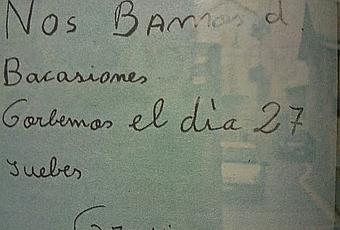 Nos Bamos d
Bacasiones
Gorbemos el dia 27
Juebes